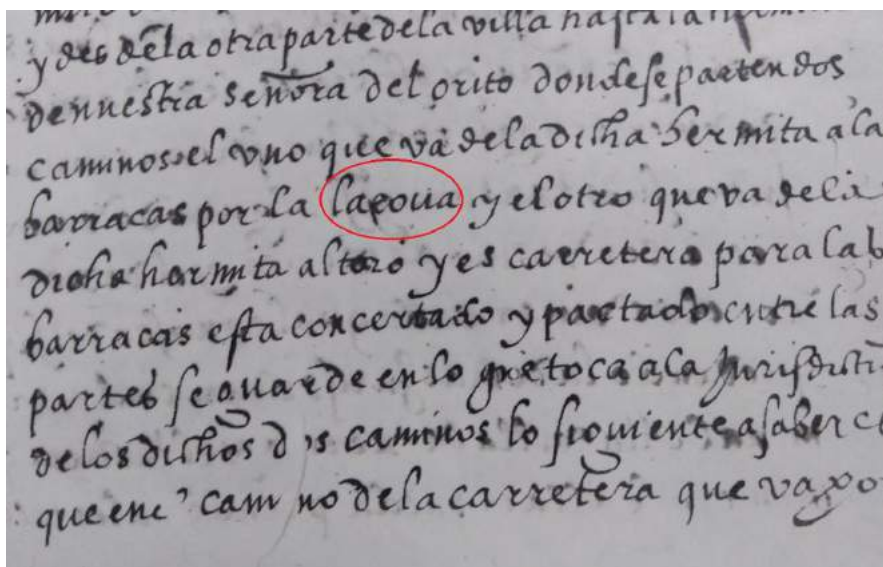 y des dela otra parte dela villa hasta la
de nuestra señora del orito donde se parten dos
caminos el vno que va dela dicha hermita a la
barracas por la lapoua y el otro que va dela
dicha hermita al toro y es carretera para la b
barracas esta concertado y pactado entre las
partes se guarde en lo que toca a la Jurisdicti
de los dichos dos caminos lo siguiente a saber
que en camino de la carretera que va po